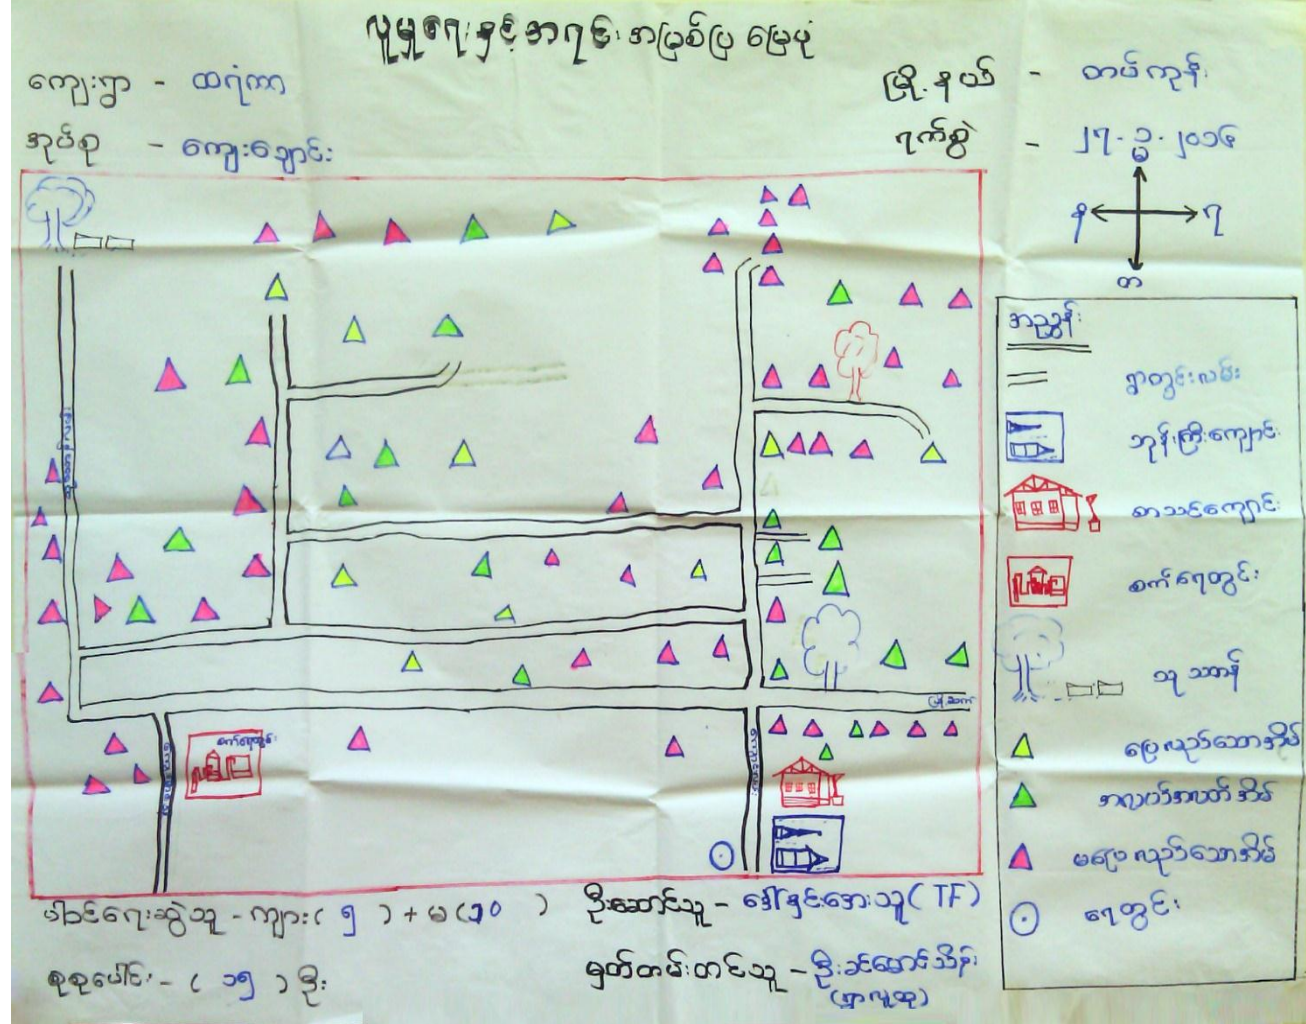 လူမှုရေးနှင့်အရင်းအမြစ်ပြ မြေပုံ
ကျေးရွာ - ထရံကာ
မြို့နယ် - တပ်ကုန်း
အုပ်စု - ကျေးချောင်း
ရက်စွဲ - ၂၇.၃.၂၀၁၆
န
ရ
တ
အညွှန်း
ရွာတွင်းလမ်း
ဘုန်းကြီးကျောင်း
စာသင်ကျောင်း
စက်ရေတွင်း
သုသာန်
ပြေလည်သောအိမ်
အလယ်အလတ်အိမ်
မပြေလည်သောအိမ်
ရေတွင်း
စက်ရေတွင်း
ပါဝင်ရေးဆွဲသူ - ကျား ( ၅ ) + မ ( ၁၀ )
စုစုပေါင်း - ( ၁၅ ) ဦး
ဦးဆောင်သူ - ဒေါ်နှင်းအေးသူ ( TF )
မှတ်တမ်းတင်သူ - ဦးခင်မောင်သိန်း
(ရွာလူထု)